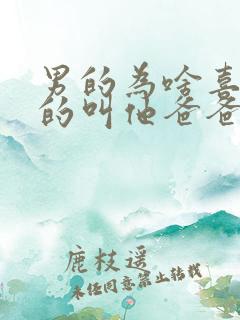 男的为啥喜
的叫他爸爸
鹿枝遥
未经同意禁止转载